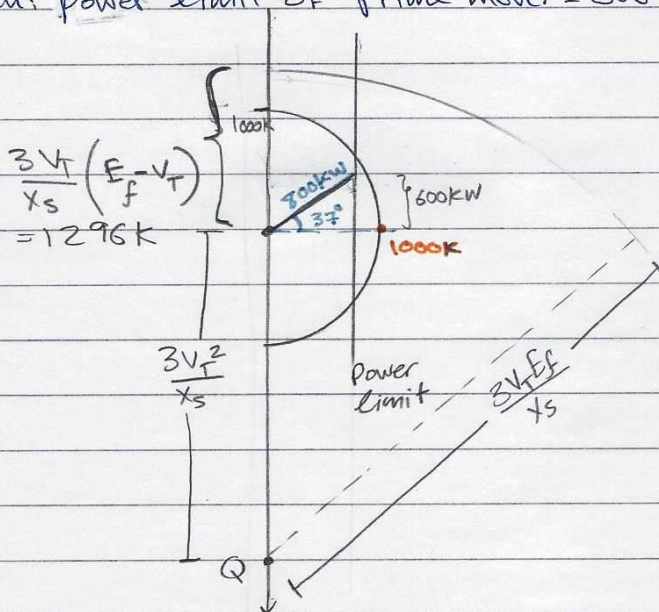 power limit of prime mover = 800
1000K
3V_T/X_S (E_f - V_T)
= 1296K
800kW
37°
600kW
1000K
3V_T²/X_S
power
limit
3V_T E_f/X_S
Q